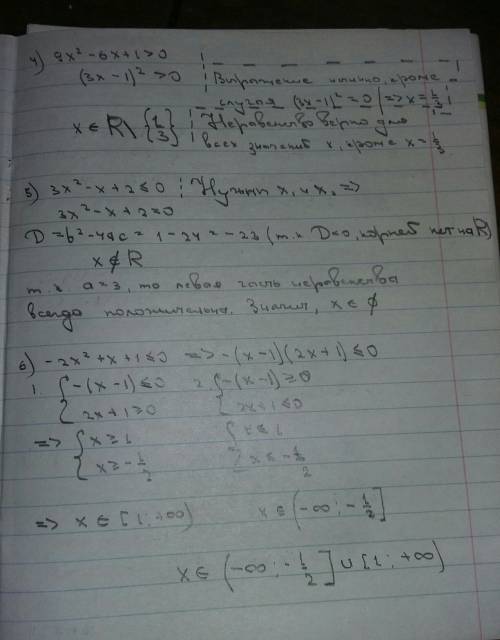 4) 9x² - 6x + 1 > 0
(3x - 1)² > 0
Выражение истинно, кроме
случая (3x - 1)² = 0 | => x = 1/3
x ∈ R \ {1/3}
Неравенство верно для
всех значений x, кроме x = 1/3
5) 3x² - x + 2 ≤ 0 Нужны x₁ и x₂ =>
3x² - x + 2 = 0
D = b² - 4ac = 1 - 24 = -23 (т.к D < 0, корней нет на R)
x ∉ R
т.к a = 3, то левая часть неравенства
всегда положительна. Значит, x ∈ ∅
6) -2x² + x + 1 ≤ 0 => -(x - 1)(2x + 1) ≤ 0
1. { -(x - 1) ≤ 0 2. { -(x - 1) ≥ 0
2x + 1 ≥ 0 2x + 1 ≤ 0
=> { x ≥ 1 { x ≤ 1
x ≥ -1/2 x ≤ -1/2
=> x ∈ [1; +∞) x ∈ (-∞; -1/2]
x ∈ (-∞; -1/2] ∪ [1; +∞)